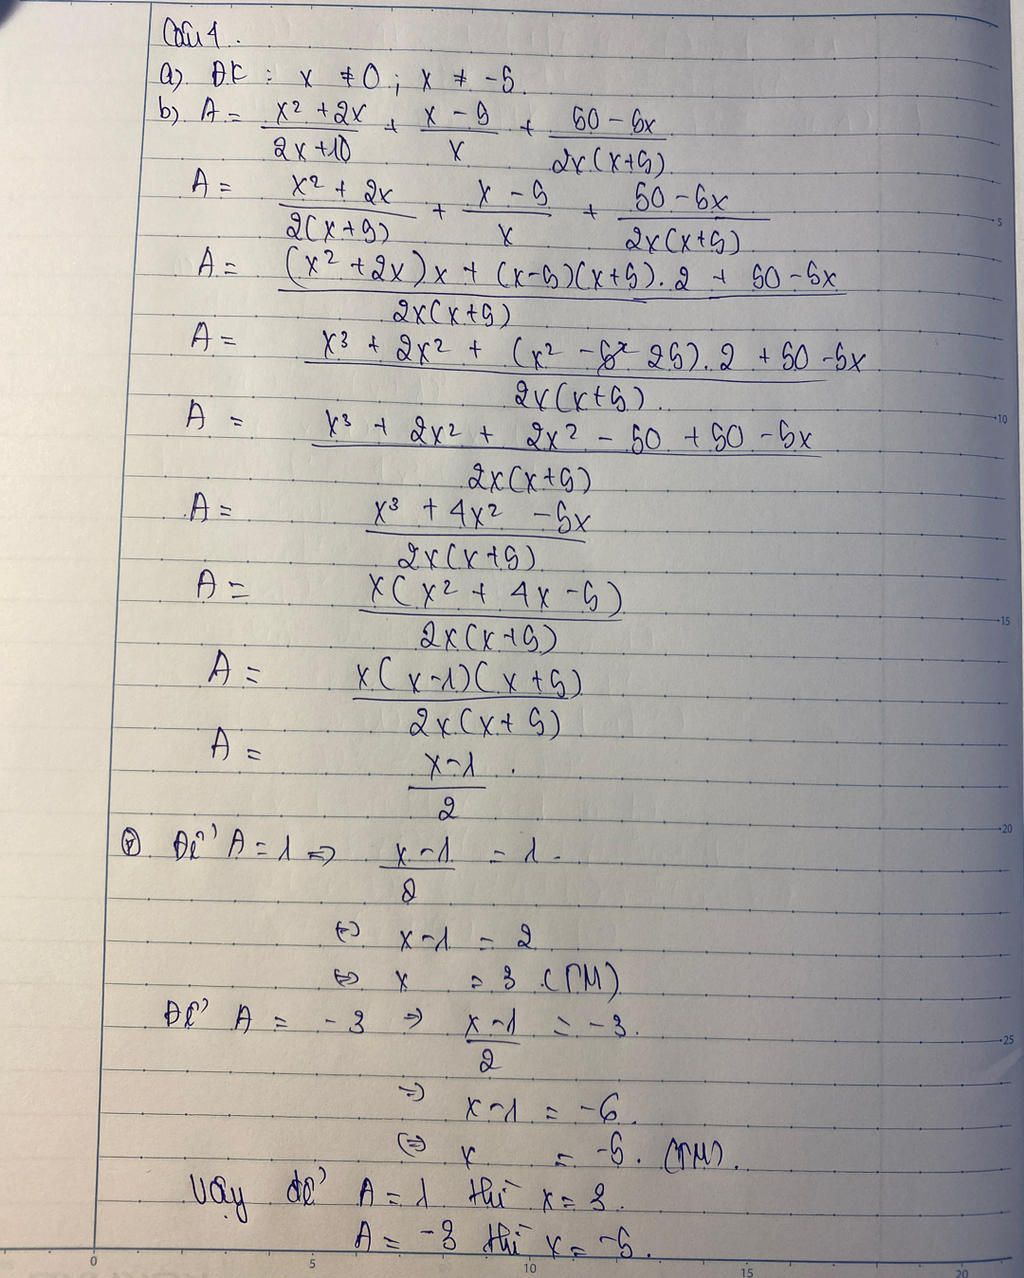 Câu 1.
a) ĐK : x ≠ 0 ; x ≠ -5.
b) A = (x² + 2x)/(2x+10) + (x - 5)/x + (50 - 5x)/(2x(x+5))
A = (x² + 2x)/(2(x+5)) + (x - 5)/x + (50 - 5x)/(2x(x+5))
A = ((x² + 2x)x + (x-5)(x+5).2 + 50 - 5x)/(2x(x+5))
A = (x³ + 2x² + (x² - 25).2 + 50 - 5x)/(2x(x+5))
A = (x³ + 2x² + 2x² - 50 + 50 - 5x)/(2x(x+5))
A = (x³ + 4x² - 5x)/(2x(x+5))
A = (x(x² + 4x - 5))/(2x(x+5))
A = (x(x-1)(x+5))/(2x(x+5))
A = (x-1)/2 .
Để A = 1 => (x-1)/2 = 1.
<=> x-1 = 2
<=> x = 3 (TM)
Để A = -3 => (x-1)/2 = -3.
=> x-1 = -6.
<=> x = -5. (TM).
Vậy để A = 1 thì x = 3.
A = -3 thì x = -5.
0 5 10 15 20
5
10
15
20
25